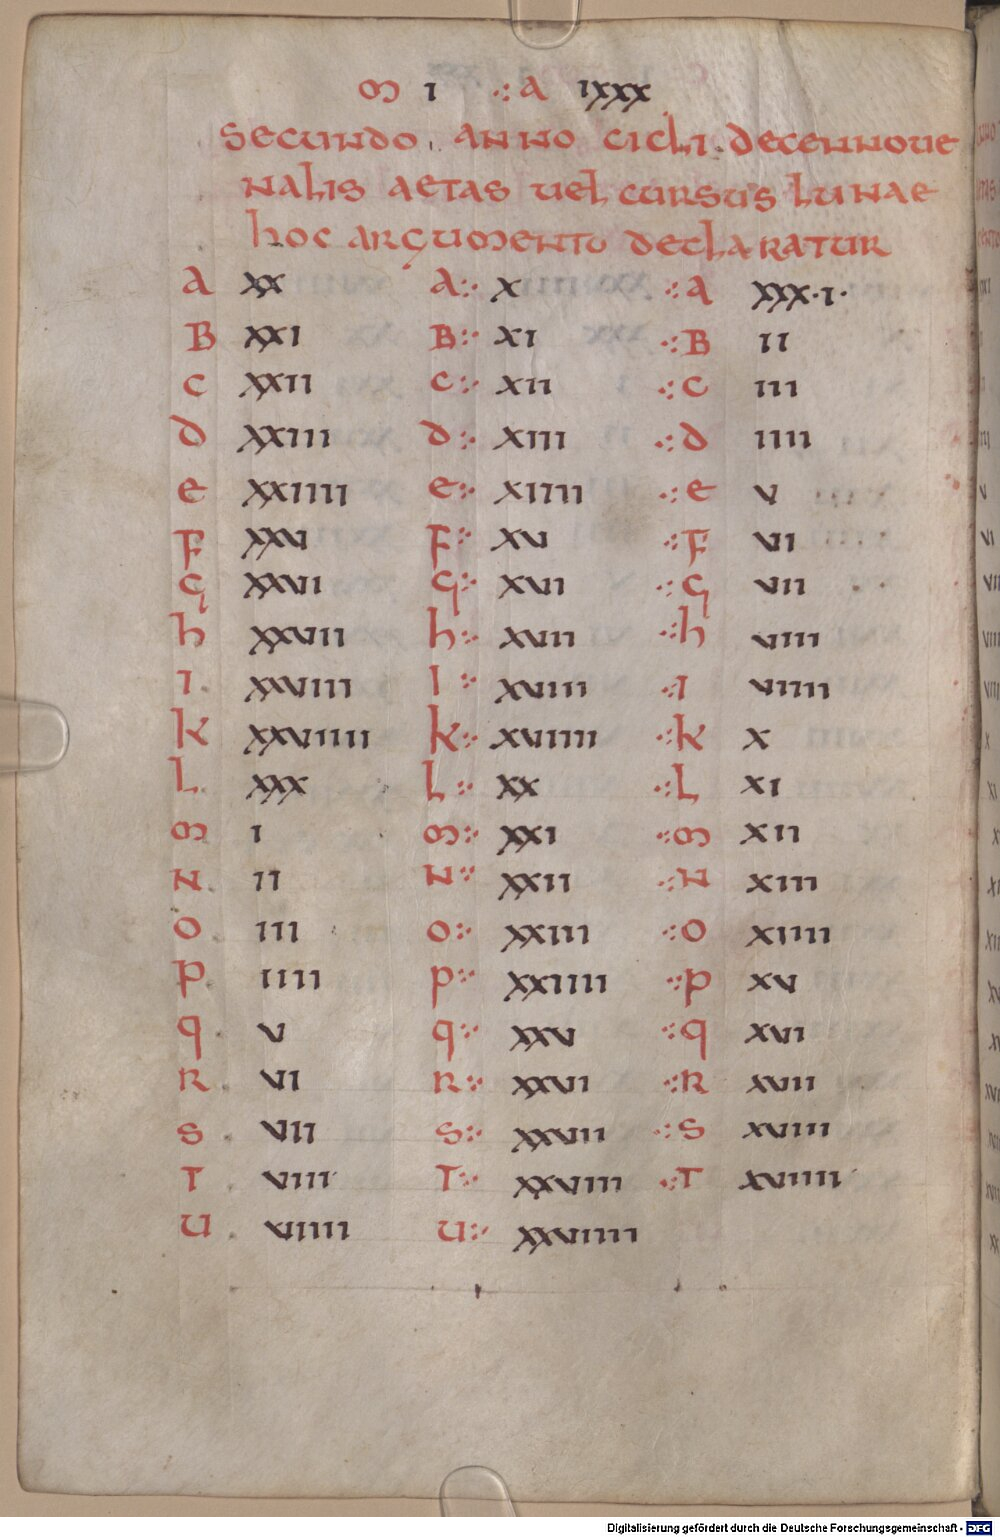 m I .: A IXXX
SECUNDO ANNO CICLI DECENNOUE
NALIS AETAS UEL CURSUS LUNAE
hOC ARGUMENTO DECLARATUR
A XX A:· X ·:A XXX·I·
B XXI B:· XI ·:B II
C XXII C:· XII ·:C III
d XXIII d:· XIII ·:d IIII
e XXIIII e:· XIIII ·:e V
F XXV F:· XV ·:F VI
G XXVI G:· XVI ·:G VII
h XXVII h:· XVII ·:h VIII
I. XXVIII I:· XVIII ·:I VIIII
K XXVIIII K:· XVIIII ·:K X
L XXX L:· XX ·:L XI
m I m:· XXI ·:m XII
N. II N:· XXII ·:N XIII
O. III O:· XXIII ·:O XIIII
P. IIII P:· XXIIII ·:P XV
q. V q:· XXV ·:q XVI
R. VI R:· XXVI ·:R XVII
S. VII S:· XXVII ·:S XVIII
T. VIII T:· XXVIII ·:T XVIIII
U. VIIII U:· XXVIIII
Digitalisierung gefördert durch die Deutsche Forschungsgemeinschaft - DFG